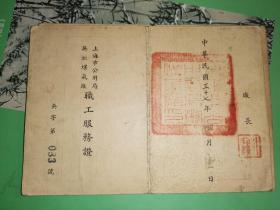 上海市公用局
吳淞煤氣廠
職工服務證
共字第 033 號
中華民國三十七年 月 日
廠長